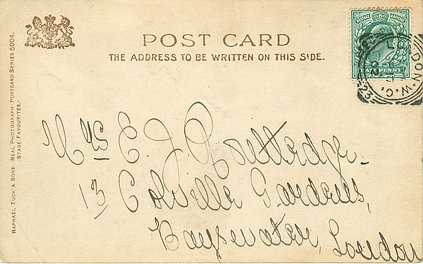 POST CARD
THE ADDRESS TO BE WRITTEN ON THIS SIDE.
RAPHAEL TUCK & SONS' REAL PHOTOGRAPH POSTCARD SERIES 5004.
STAGE FAVOURITES.
HALFPENNY
LONDON. W.C.
23
Mrs E J Routledge
13 Colville Gardens,
Bayswater, London